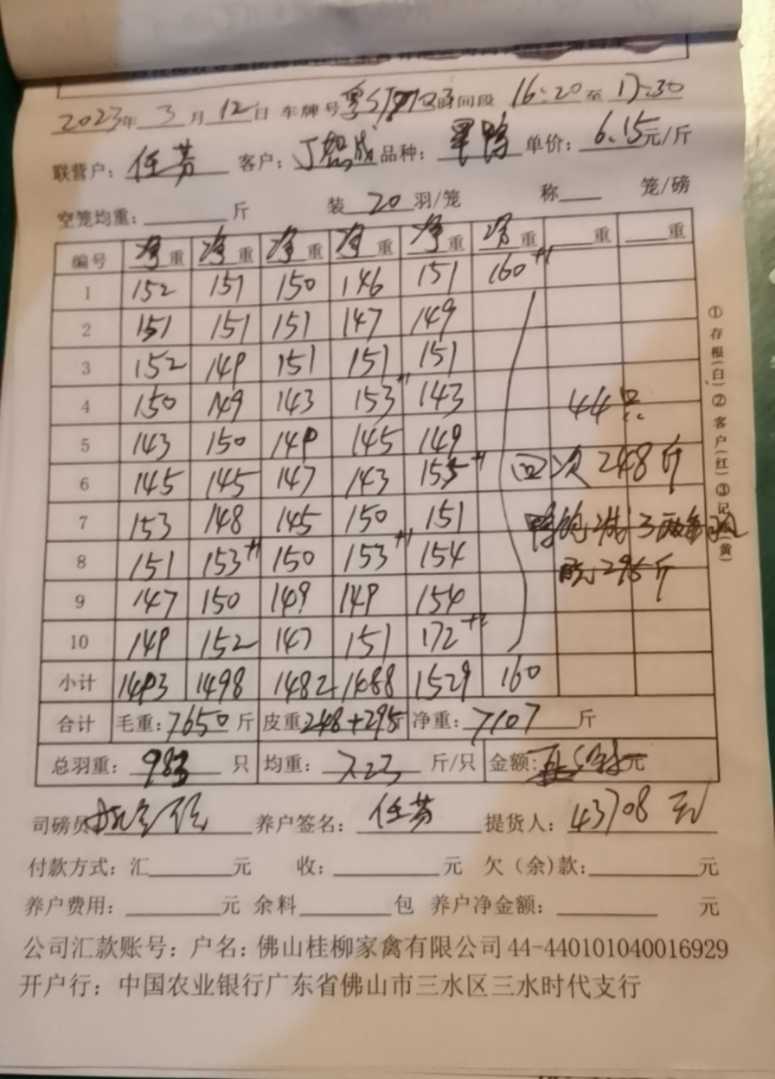 2023年 3 月 12 日 车牌号 时间段 16:20 至 17:30
联营户: 任芳 客户: 丁 成 品种: 单价: 6.15 元/斤
空笼均重: 斤 装 20 羽/笼 称 笼/磅
编号 净重 净重 净重 净重 净重 净重 重 重
1 152 151 150 146 151 160
2 151 151 151 147 149
3 152 149 151 151 151
4 150 149 143 153 143 44只
5 143 150 149 145 149
6 145 145 147 143 155 次 248斤
7 153 148 145 150 151
8 151 153 150 153 154 295斤
9 147 150 149 149 154
10 149 152 147 151 172
小计 1493 1498 1482 1488 1529 160
合计 毛重: 7650 斤 皮重 248+295 净重: 7107 斤
总羽重: 983 只 均重: 7.23 斤/只 金额: 元
司磅员: 养户签名: 任芳 提货人: 43708元
付款方式: 汇 元 收: 元 欠(余)款: 元
养户费用: 元 余料 包 养户净金额: 元
公司汇款账号: 户名: 佛山桂柳家禽有限公司 44-440101040016929
开户行: 中国农业银行广东省佛山市三水区三水时代支行
①存根(白)②客户(红)③记 (黄)